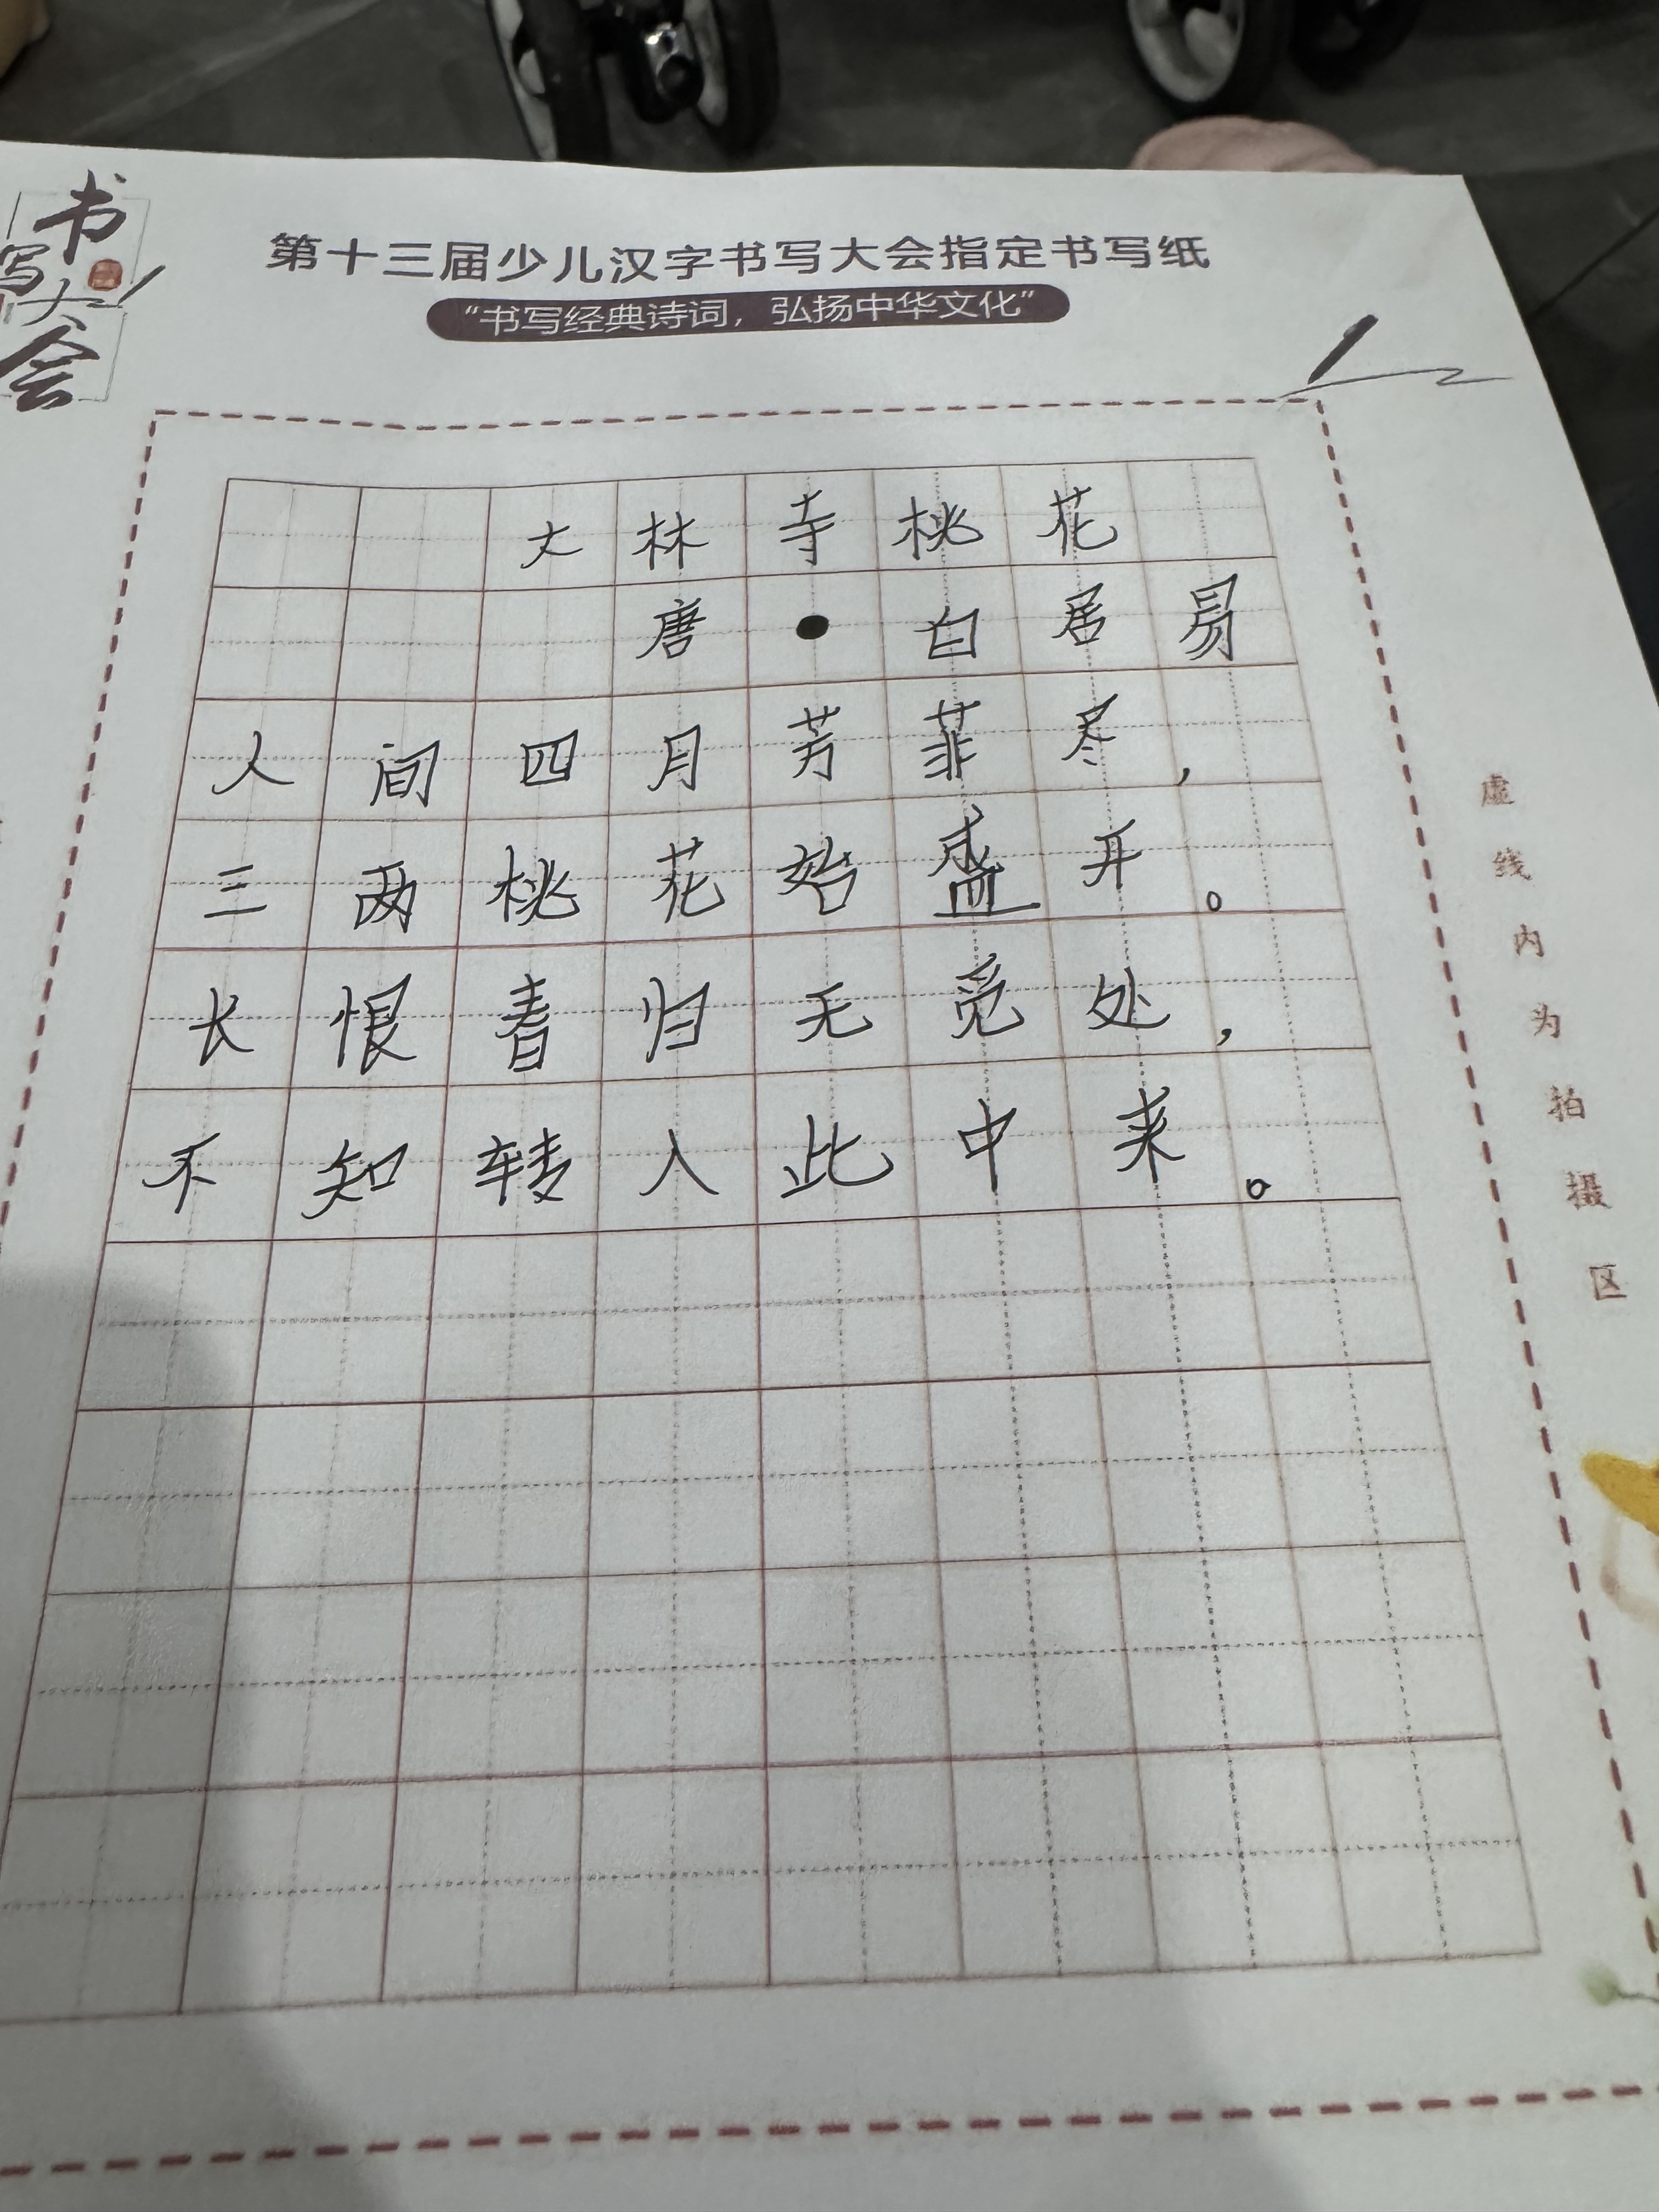 书写大会
第十三届少儿汉字书写大会指定书写纸
“书写经典诗词，弘扬中华文化”
大林寺桃花
唐·白居易
人间四月芳菲尽，
三两桃花始盛开。
长恨春归无觅处，
不知转入此中来。
虚线内为拍摄区